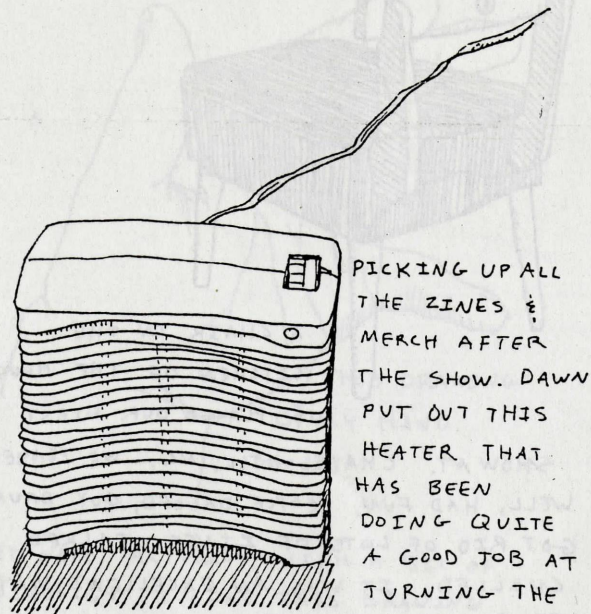 PICKING UP ALL
THE ZINES &
MERCH AFTER
THE SHOW. DAWN
PUT OUT THIS
HEATER THAT
HAS BEEN
DOING QUITE
A GOOD JOB AT
TURNING THE